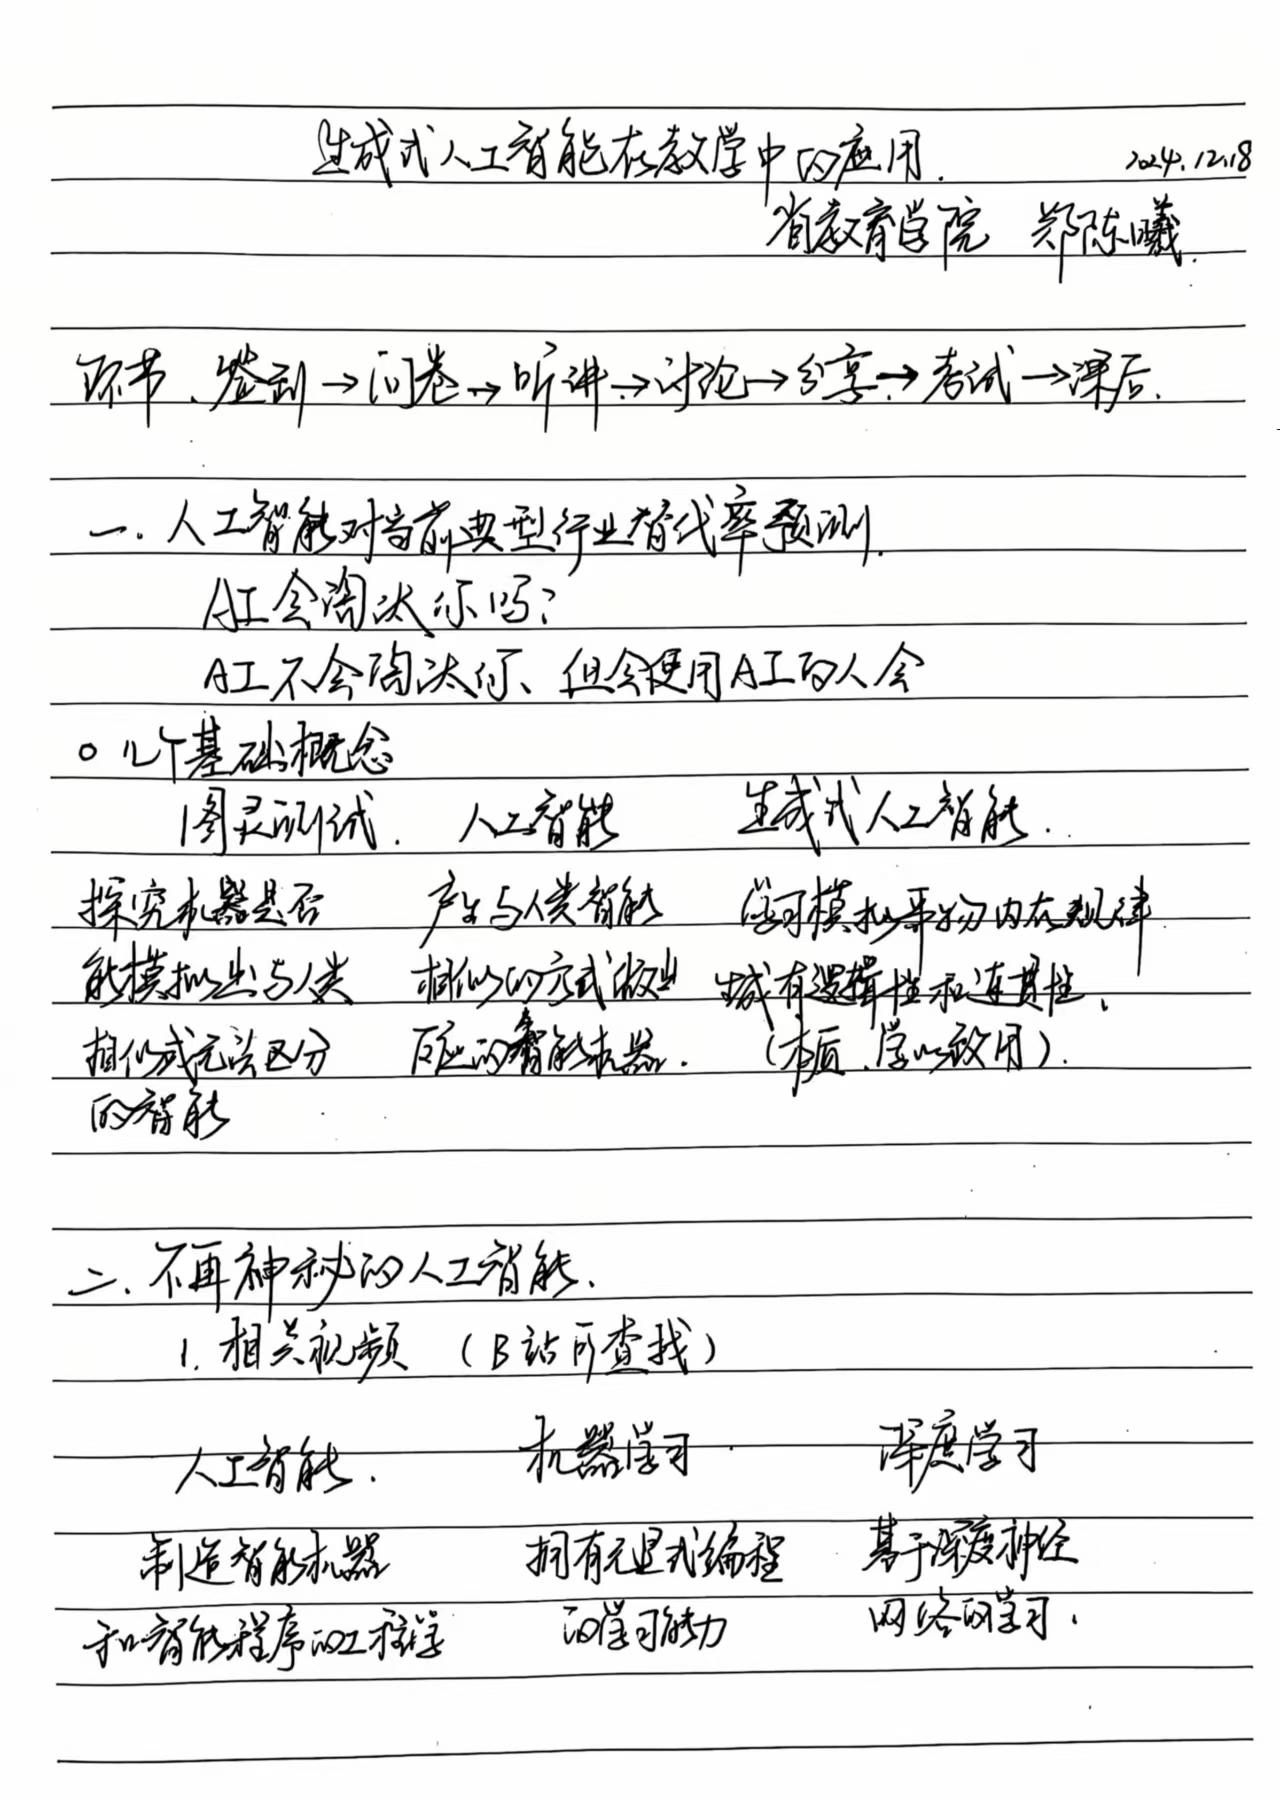 生成式人工智能在教学中的应用. 2024.12.18
省教育学院 郑陈曦.
环节、签到→问卷→听讲→讨论→分享→考试→课后.
一. 人工智能对当前典型行业替代率预测.
AI会淘汰你吗?
AI不会淘汰你、但会使用AI的人会
○ 几个基础概念
图灵测试. 人工智能 生成式人工智能.
探究机器是否 产生与人类智能 学习模拟事物内在规律
能模拟出与人类 相似的方式做出 生成有逻辑性和连贯性、
相似或无法区分 反应的智能机器. (本质、学以致用).
的智能
二. 不再神秘的人工智能、
1. 相关视频 (B站可查找)
人工智能. 机器学习 深度学习
制造智能机器 拥有无显式编程 基于深度神经
和智能程序的工程学 的学习能力 网络的学习.